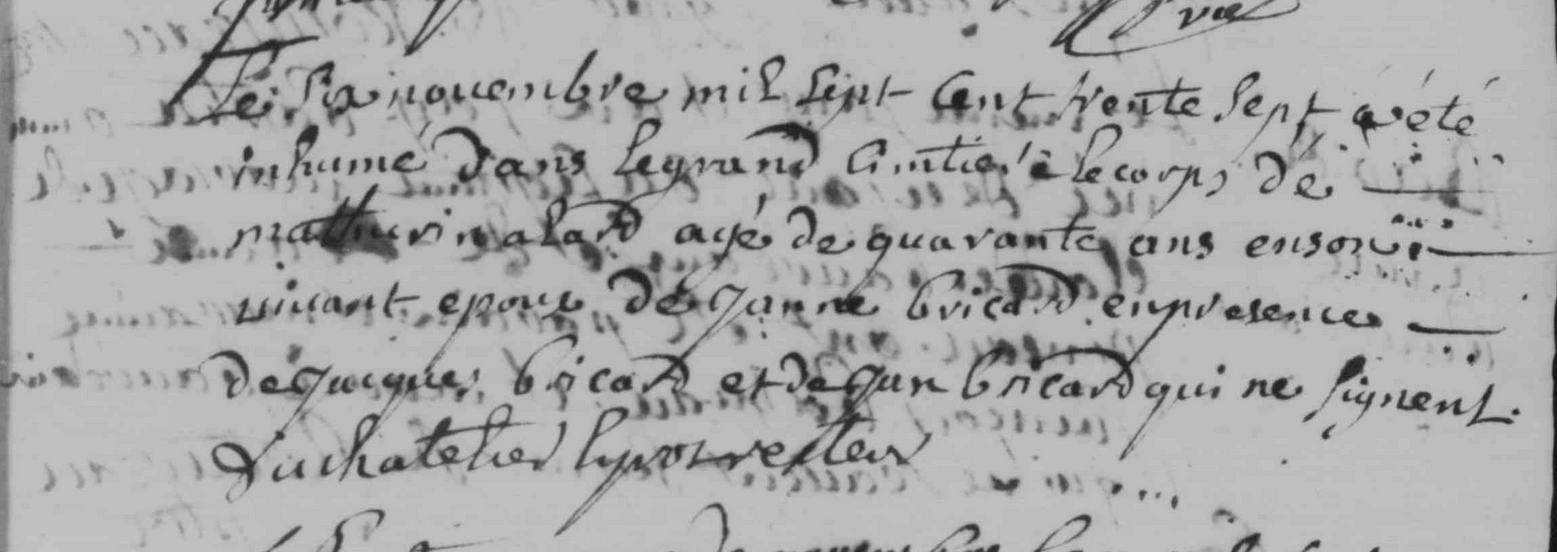 Le six nouembre mil sept Cent trente sept a été
inhumé dans le grand Cimtiere le corps dé
mathurin alard agé de quarante ans en son
uiuant epoux dé Janne bricard en presence
de Jacques bricard et de Jan bricard qui ne signent.
Duchatelier